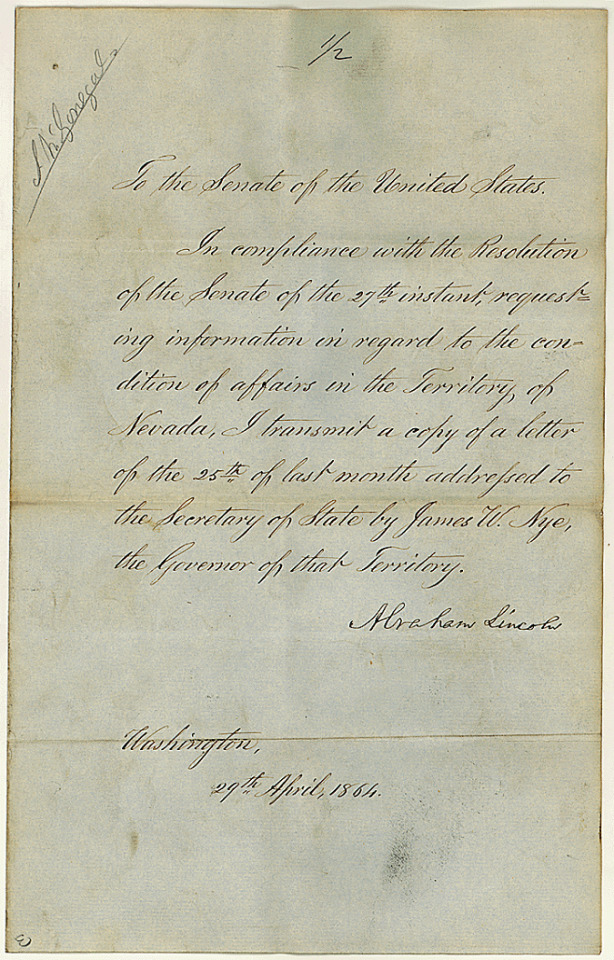 1/2
To the Senate of the United States.
In compliance with the Resolution
of the Senate of the 27th instant, request=
ing information in regard to the con-
dition of affairs in the Territory of
Nevada, I transmit a copy of a letter
of the 25th of last month addressed to
the Secretary of State by James W. Nye,
the Governor of that Territory.
Abraham Lincoln
Washington,
29th April, 1864.